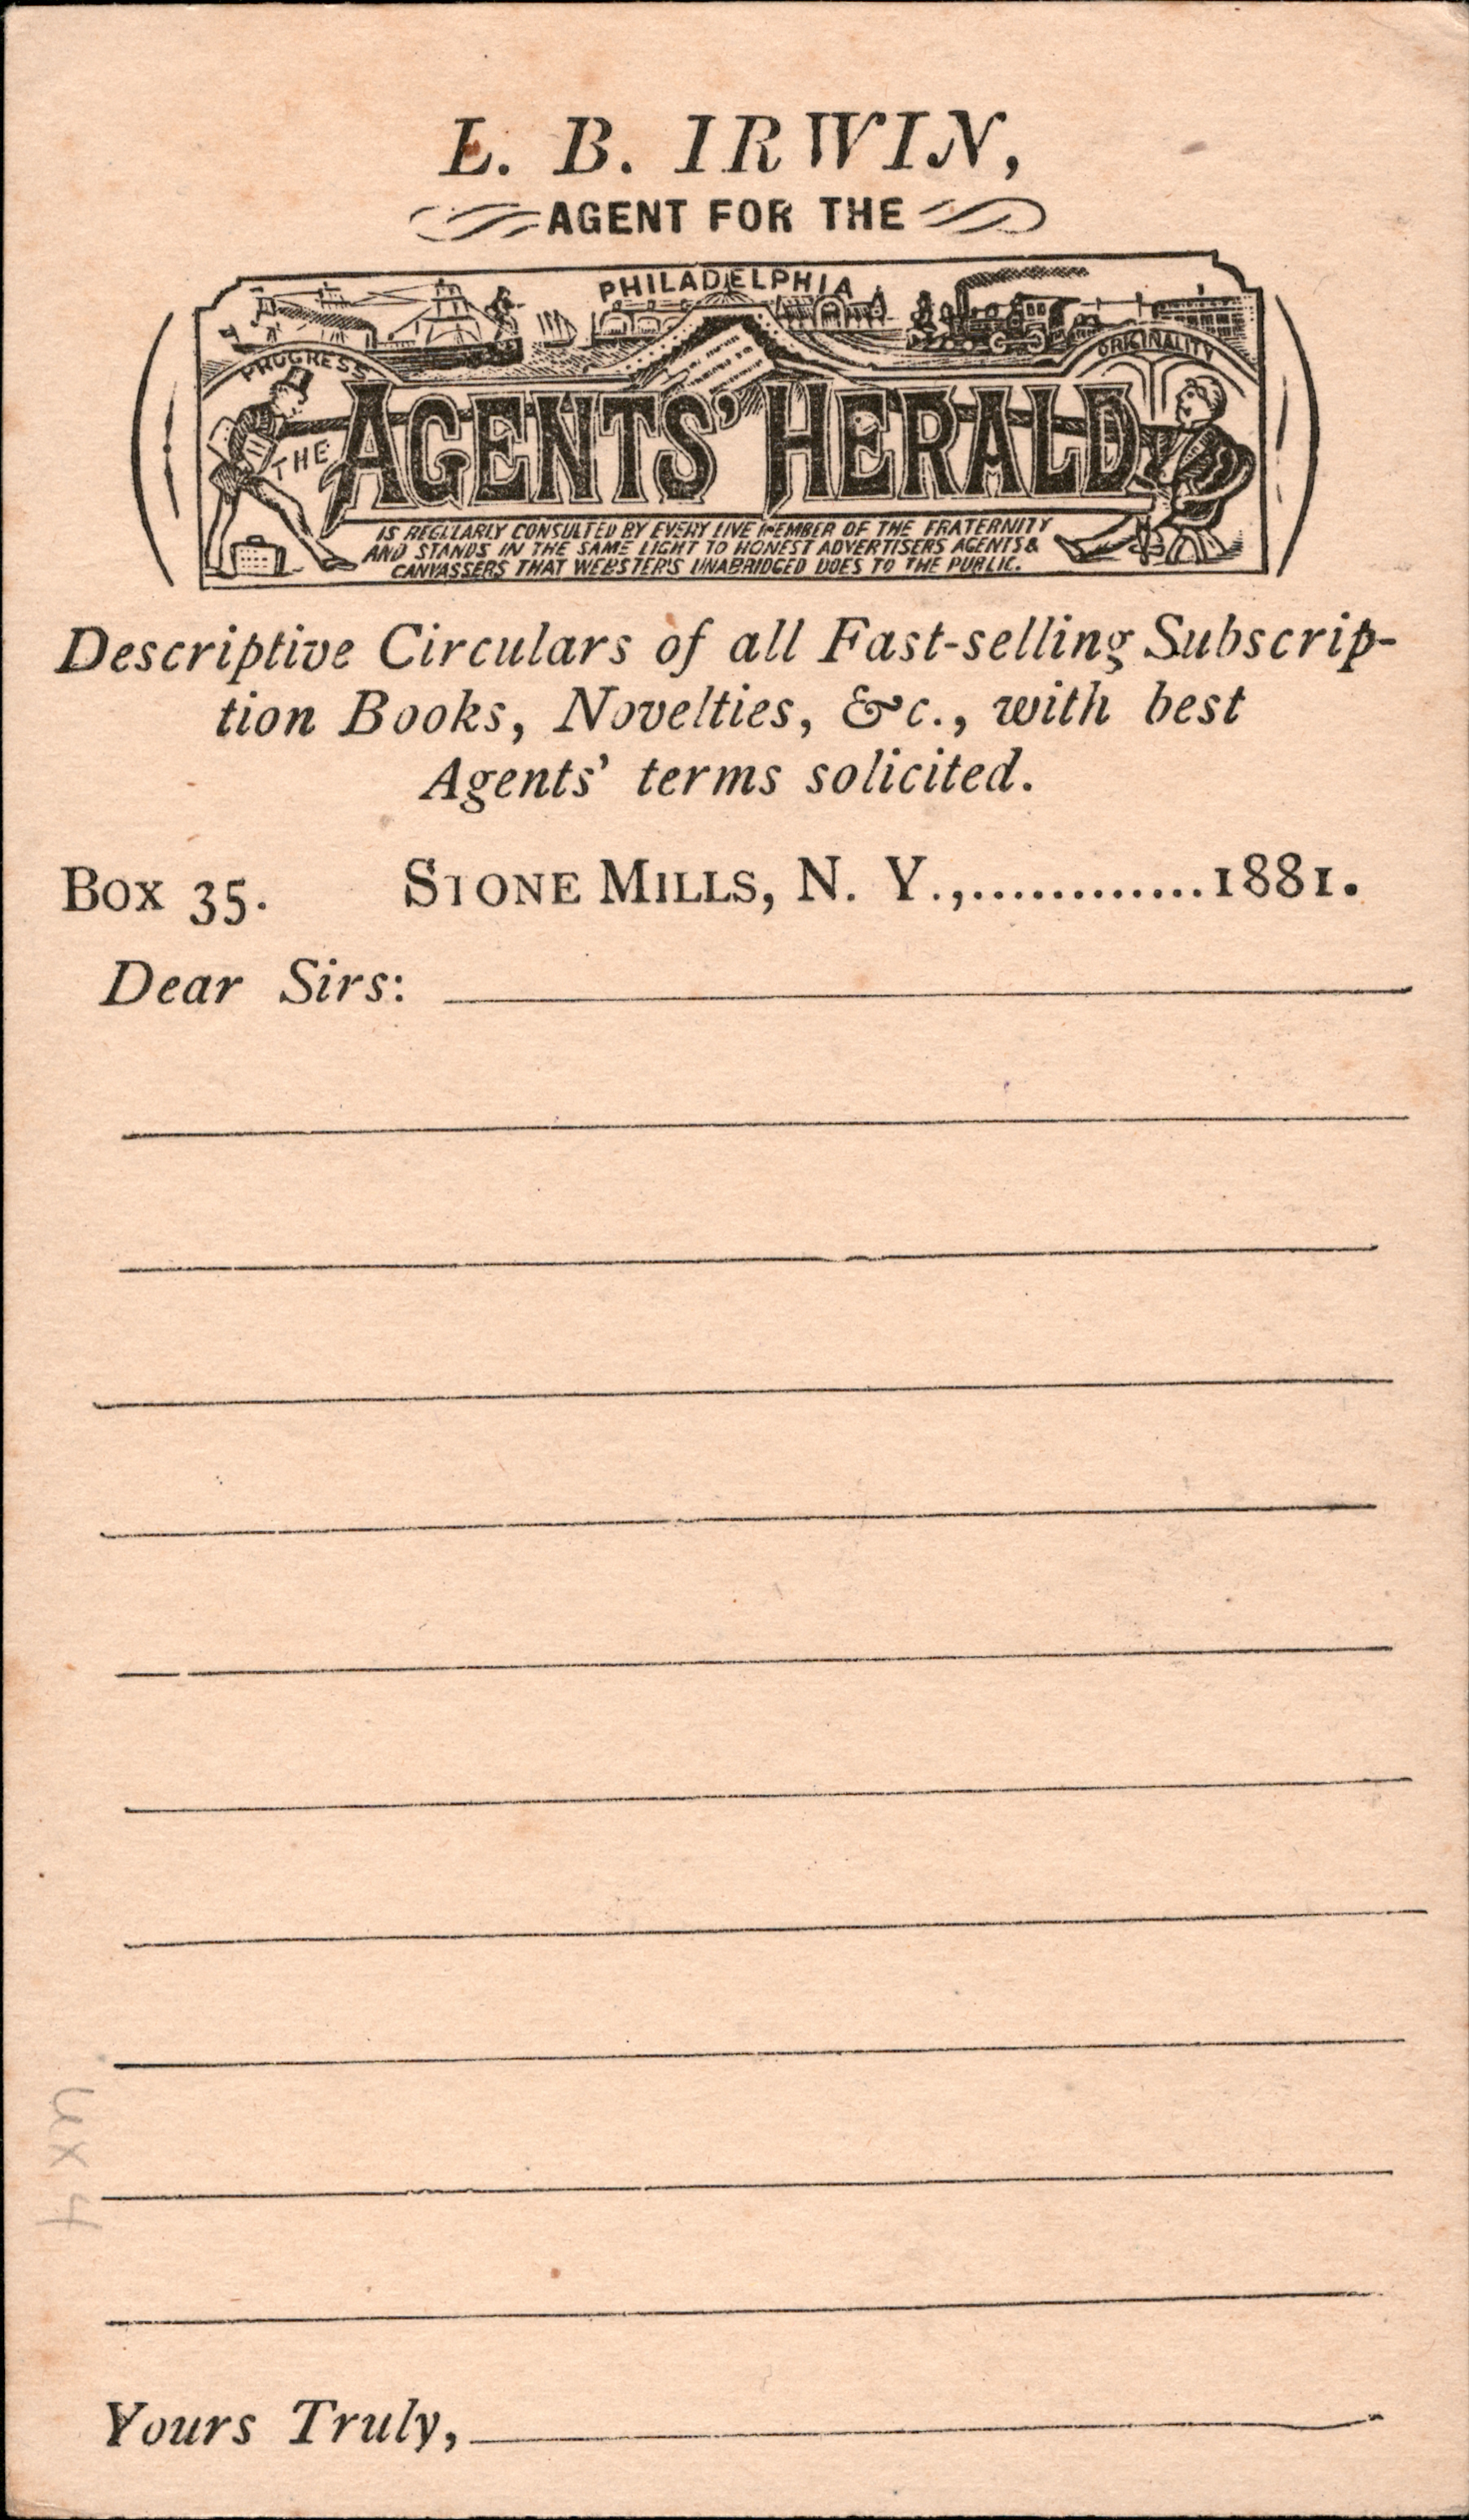 L. B. IRWIN,
AGENT FOR THE
PHILADELPHIA
PROGRESS
ORIGINALITY
THE AGENTS' HERALD
IS REGULARLY CONSULTED BY EVERY LIVE MEMBER OF THE FRATERNITY
AND STANDS IN THE SAME LIGHT TO HONEST ADVERTISERS AGENTS &
CANVASSERS THAT WEBSTER'S UNABRIDGED DOES TO THE PUBLIC.
Descriptive Circulars of all Fast-selling Subscrip-
tion Books, Novelties, &c., with best
Agents' terms solicited.
Box 35. STONE MILLS, N. Y.,.............1881.
Dear Sirs:
Yours Truly,